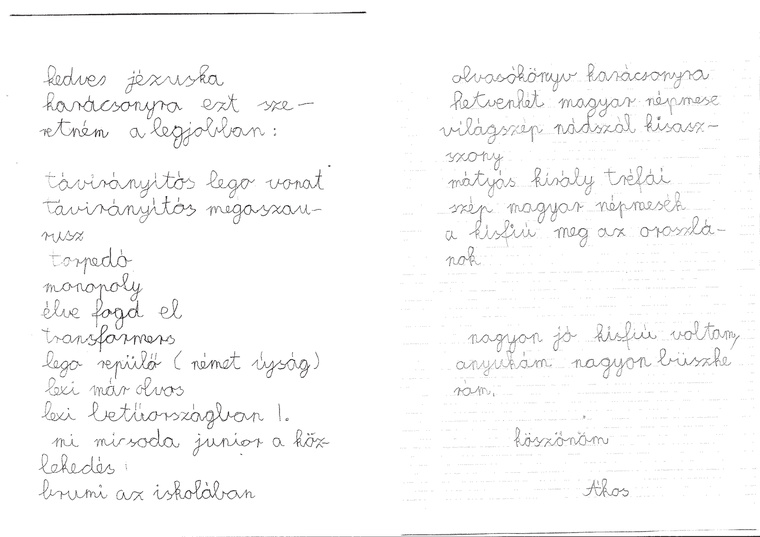 kedves jézuska
karácsonyra ezt sze-
retném a legjobban:
távirányitós lego vonat
távirányitós megaszau-
rusz
torpedó
monopoly
élve fogd el
transformers
lego repülő (német úyság)
lexi már olvas
lexi betűországban 1.
mi micsoda junior a köz-
lekedés
brumi az iskolában
olvasókönyv karácsonyra
hetvenhét magyar népmese
világszép nádszál kisasz-
szony
mátyás király tréfái
szép magyar népmesék
a kisfiú meg az oroszlá-
nok
nagyon jó kisfiú voltam,
anyukám nagyon büszke
rám.
köszönöm
Ákos